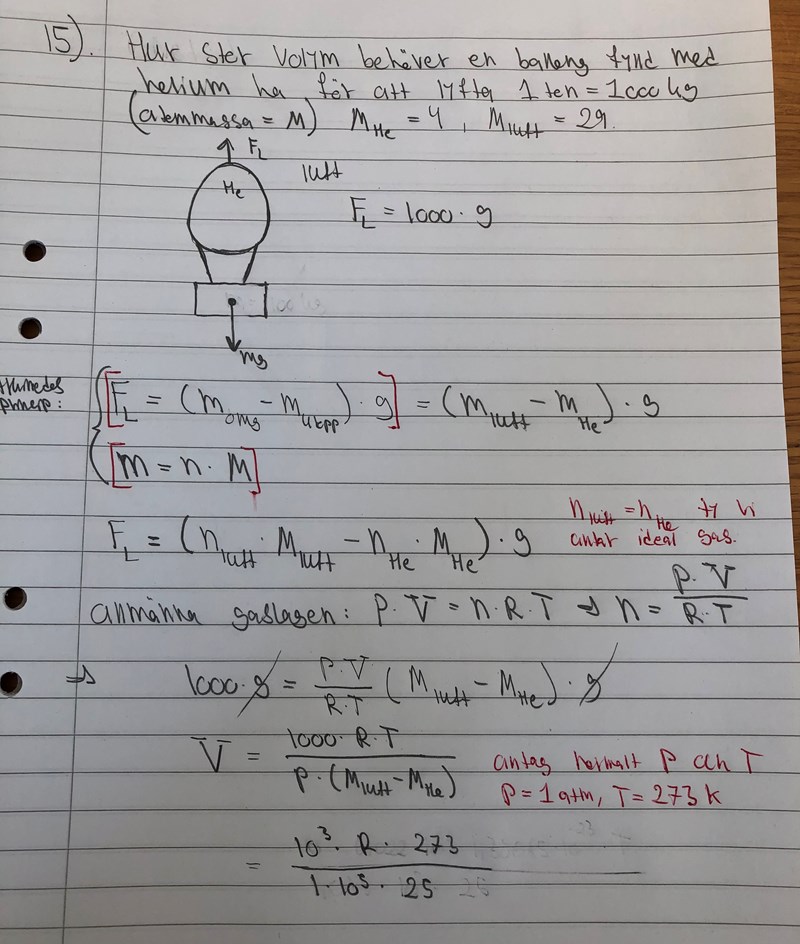 15). Hur stor volym behöver en ballong fylld med
helium ha för att lyfta 1 ton = 1000 kg
(atommassa = M) M_He = 4 , M_luft = 29.
F_L
He
luft
F_L = 1000 · g
mg
princip:
[F_L = (m_omg - m_kropp) · g] = (m_luft - m_He) · g
[m = n · M]
F_L = (n_luft · M_luft - n_He · M_He) · g
n_luft = n_He ty vi
antar ideal gas.
allmänna gaslagen: P · V = n · R · T ⇒ n = P · V / R · T
⇒ 1000 · g = P · V / R · T (M_luft - M_He) · g
V = 1000 · R · T / P · (M_luft - M_He)
antag normalt P och T
P = 1 atm, T = 273 K
= 10³ · R · 273 / 1 · 10⁵ · 25